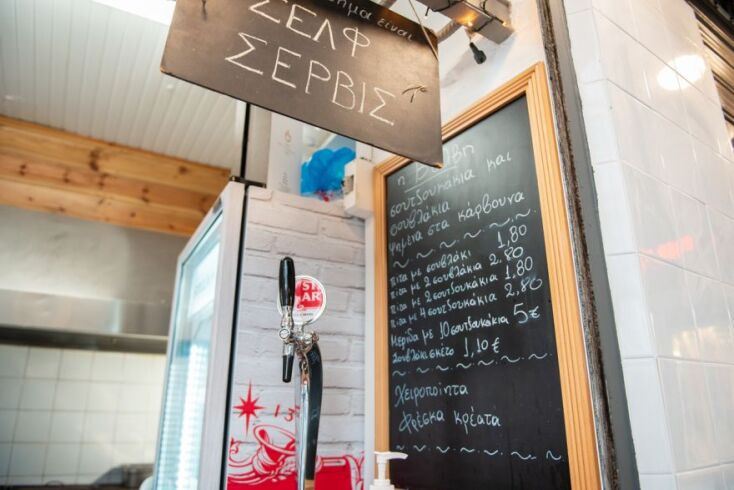 σήμα είναι
ΣΕΛΦ
ΣΕΡΒΙΣ
6
η Βιβή
σουτζουκάκια και
σουβλάκια
ψημένα στα κάρβουνα
Πίτα με σουβλάκι 1,80
Πίτα με 2 σουβλάκια 2,80
Πίτα με 2 σουτζουκάκια 1,80
Πίτα με 4 σουτζουκάκια 2,80
Μερίδα με 10 σουτζουκάκια 5€
Σουβλάκι σκέτο 1,10€
Χειροποίητα
Φρέσκα κρέατα
ST
AR
13